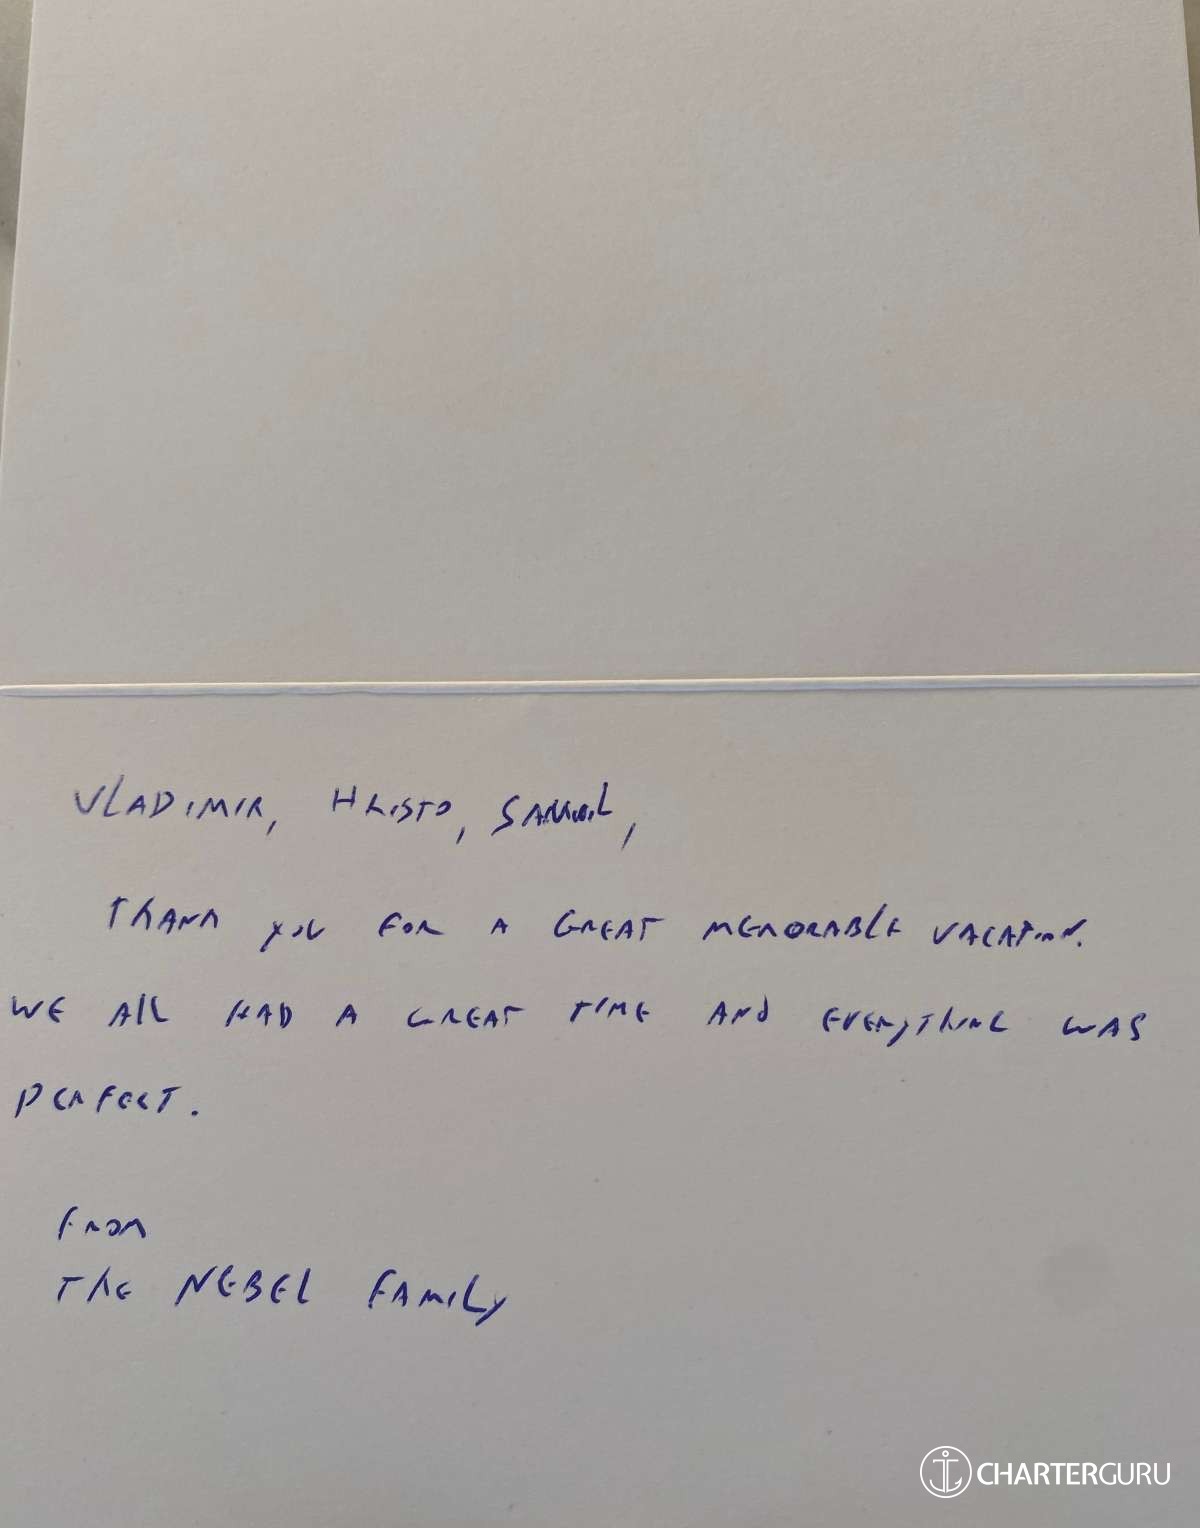 VLADIMIR, HRISTO,
THANK YOU FOR A GREAT MEMORABLE VACATION.
WE ALL HAD A GREAT TIME AND EVERYTHING WAS
PERFECT.
FROM
THE NEBEL FAMILY
CHARTERGURU